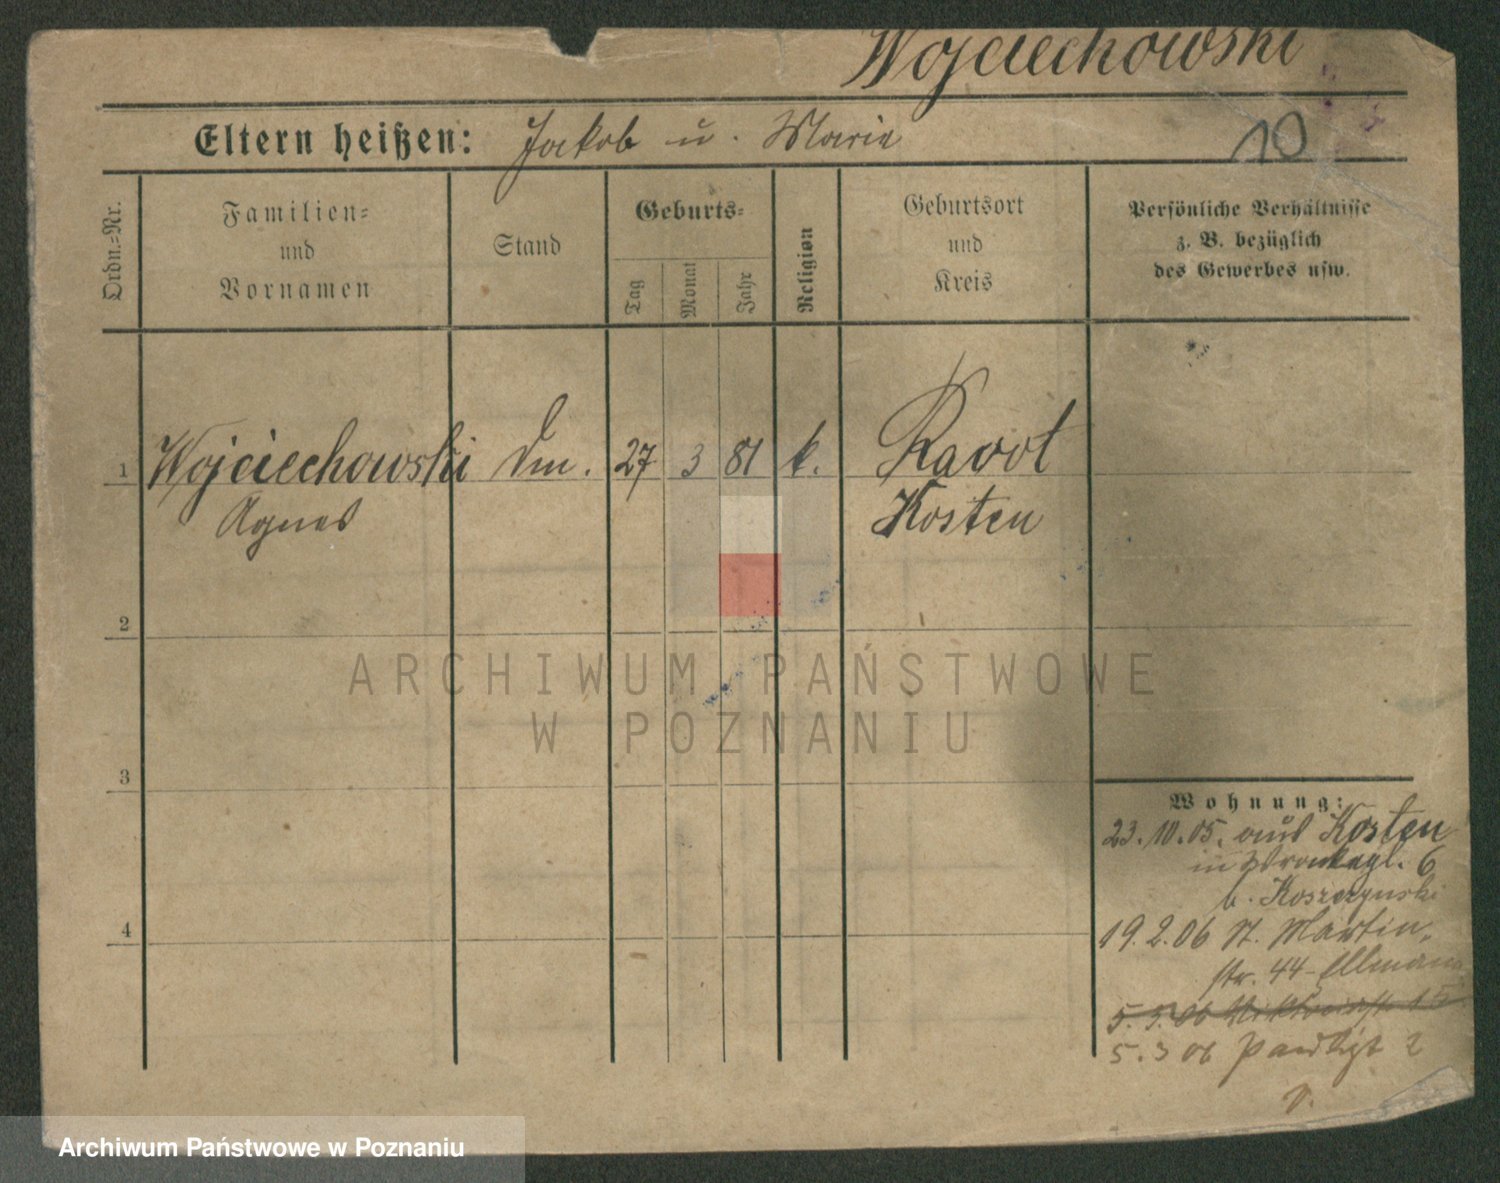 Wojciechowski
Eltern heißen: Jakob u. Marie
10
Ordn.=Nr.
Familien=
und
Vornamen
Stand
Geburts=
Tag
Monat
Jahr
Religion
Geburtsort
und
Kreis
Persönliche Verhältnisse
z. B. bezüglich
des Gewerbes usw.
1 Wojciechowski 27 3 81 k.
Agnes Kosten
2
3
4
Wohnung:
23.10.05. aus Kosten
in 6
b. Koszczynski
19.2.06 St. Martin-
str. 44
5.3.06
5.3 06 2
ARCHIWUM PAŃSTWOWE
W POZNANIU
Archiwum Państwowe w Poznaniu